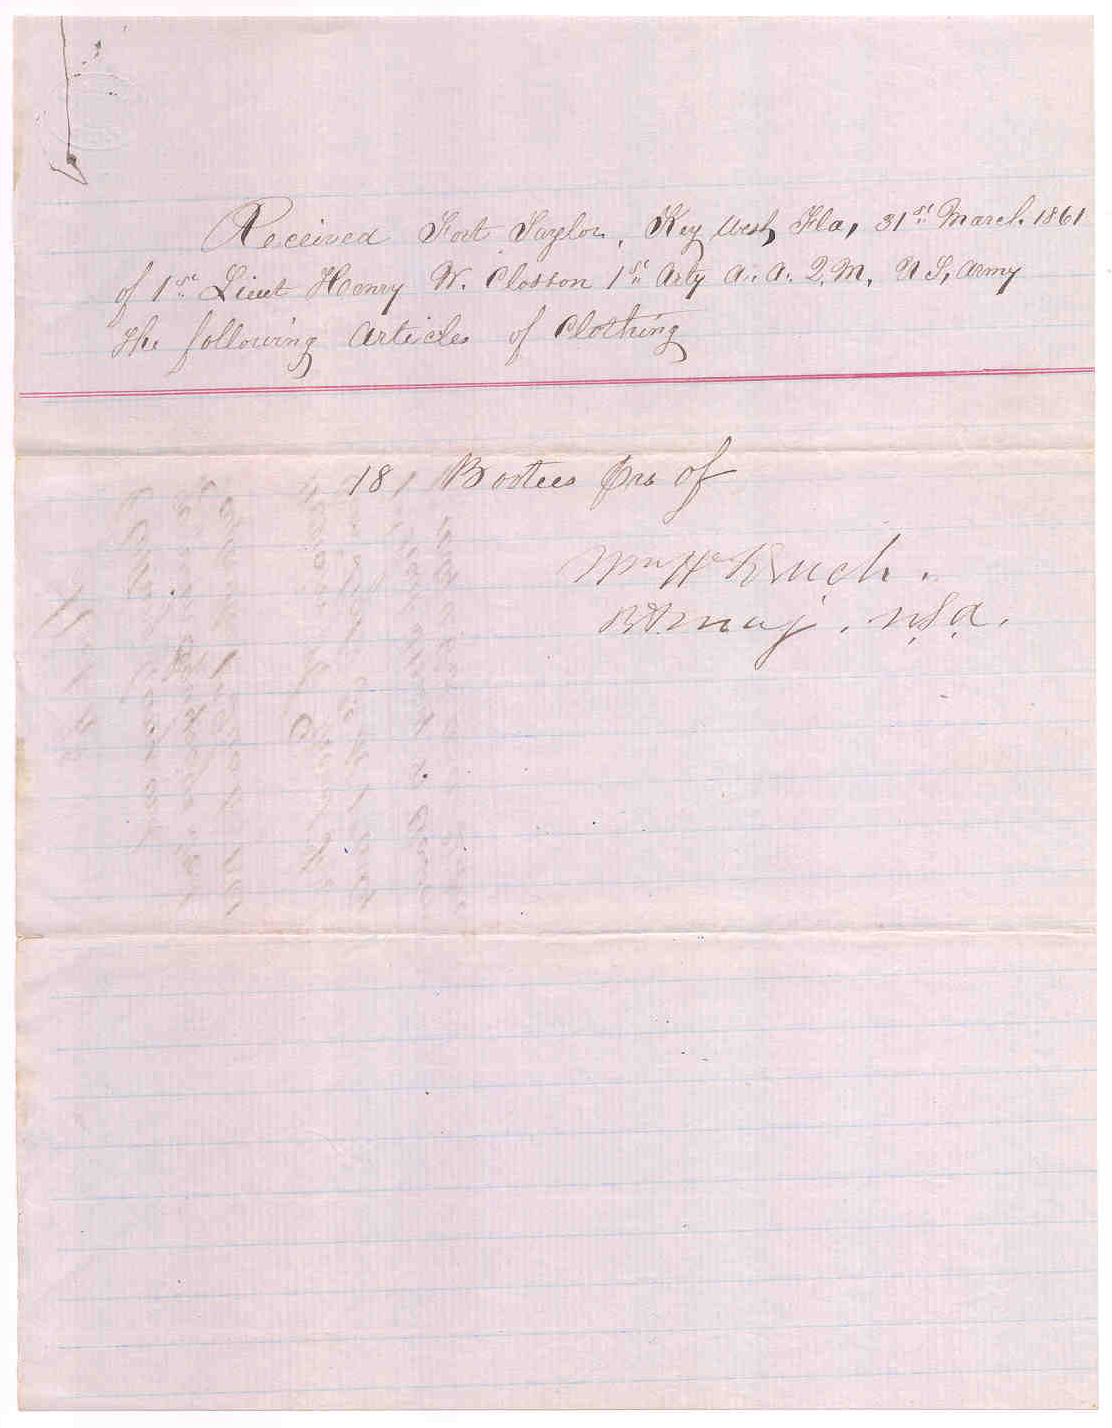 Received Fort Taylor, Key West, Fla, 31st March 1861
of 1st Lieut Henry W. Closson 1st Arty A. A. Q. M. U S, Army
the following Articles of Clothing
18 Bootees Prs of
Wm H French.
Bt Maj. U.S.A.